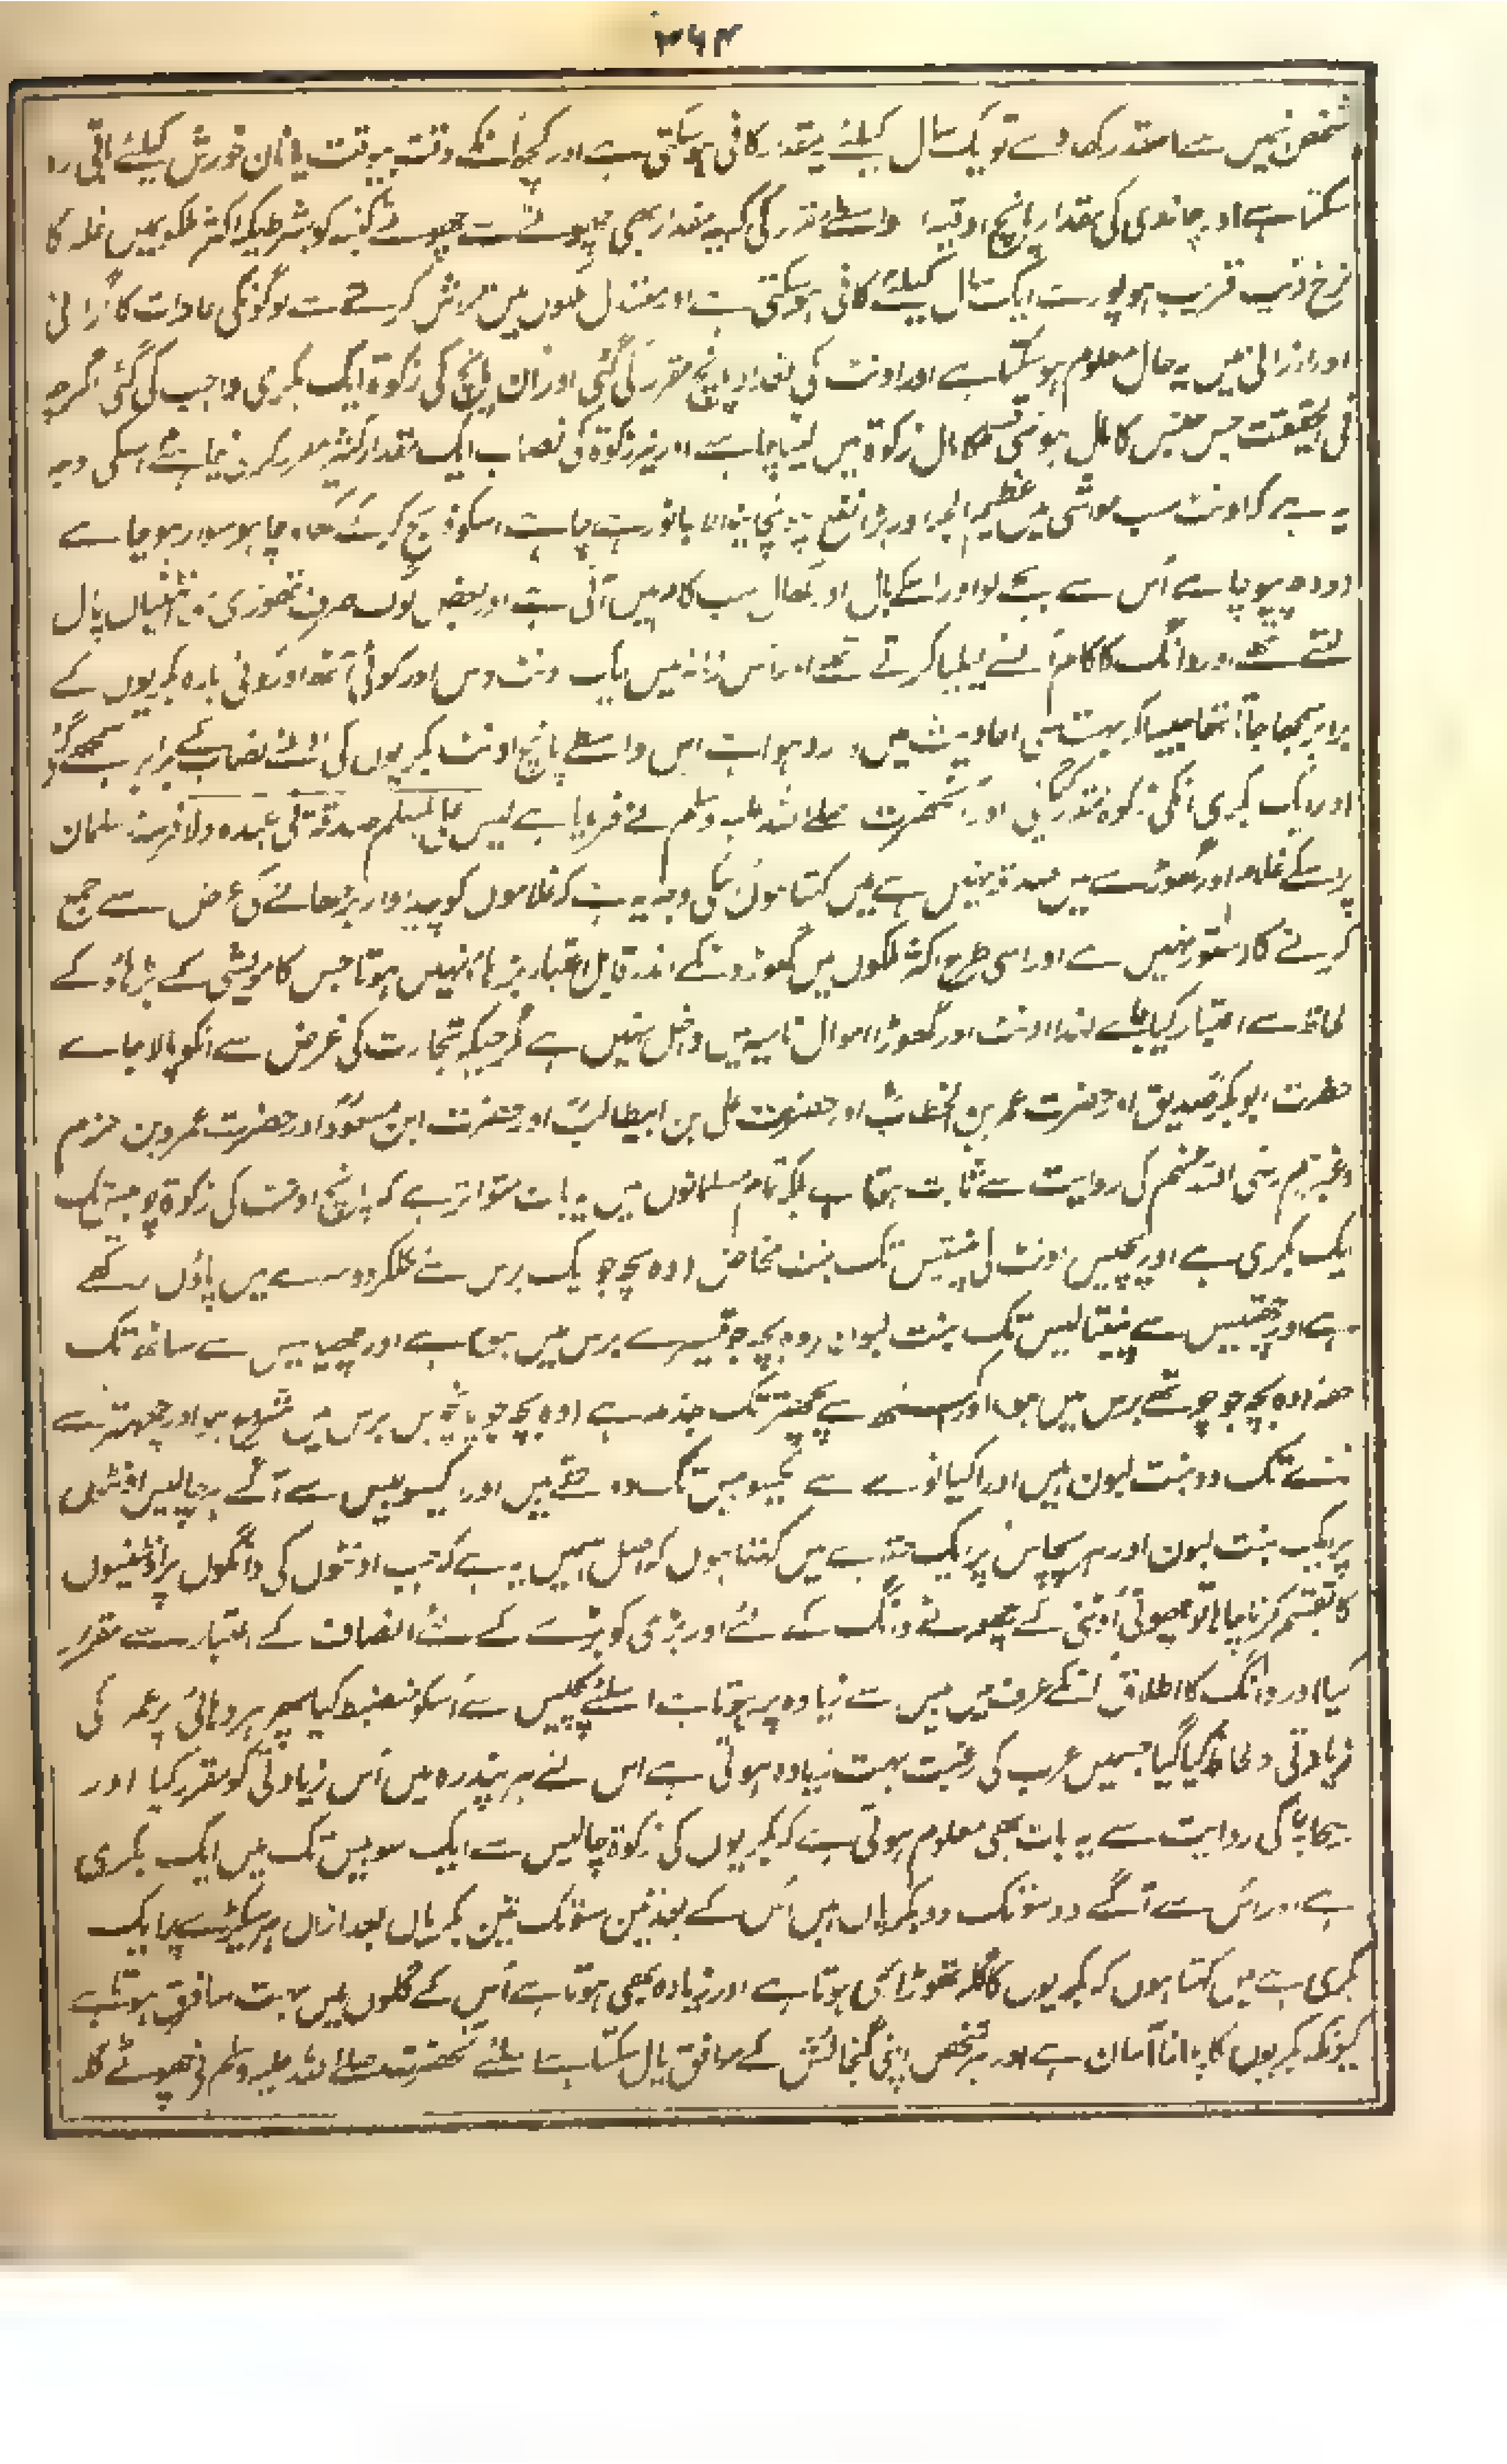 ۳۶۴
شخص انہیں سے اسقدر رکھ دے تو یک سال کیلئے یہقدر کافی ہو سکتی ہے اور کچھ انکے وقت بیوقت یا نان خورش کیلئے باقی رہ
سکتا ہے اور چاندی کی مقدار پانچ اوقیہ واسطے مقرر کی گئی کہ یہ مقدار بھی چھوٹے سے چھوٹے کنبہ کو بشرطیکہ اکثر ملکو نمیں غلہ کا
نرخ قریب قریب ہو پورے ایک سال کیلئے کافی ہو سکتی ہے اور معتدل ملکوں میں تلاش کرنے سے لوگونکی عادات کا گرانی
اور ارزانی میں یہ حال معلوم ہو سکتا ہے اور اونٹ کی تعداد پانچ مقرر کی گئی اور ان پانچ کی زکوۃ ایک بکری واجب کی گئی اگرچہ
فی الحقیقت جس جنس کا مال ہو اسی قسم کا مال زکوۃ میں لینا چاہئے اور نیز زکوۃ کی نصاب ایک مقدار کثیر مقرر کرنی چاہئے اسکی وجہ
یہ ہے کہ اونٹ سب مواشی میں عظیم الجثہ اور بڑا نفع پہنچانیوالا جانور ہے چاہے اسکو ذبح کرکے کھاؤ چاہو سوار ہو چاہے
دودہ پیو چاہے اس سے بچے لو اور اسکے بال اور کھال سب کام میں آتی ہے اور بعض لوگ صرف تھوڑی سی اونٹنیاں پال
لیتے تھے اور وانگ کا کام اُنسے لیلیا کرتے تھے اور اُس زمانہ میں ایک اونٹ دس اور کوئی آٹھ اور کوئی بارہ بکریوں کے
برابر سمجھا جاتا تھا جیسا کہ بہت سی احادیث میں وارد ہوا ہے اس واسطے پانچ اونٹ بکریوں کی ادنے نصاب کے برابر سمجھے گئے
اور ایک بکری انکی زکوہ مقرر کی گئی اور آنحضرت صلے اللہ علیہ وسلم نے فرمایا ہے لیس علی المسلم صدقۃ فی عبدہ ولا فرسہ مسلمان
پر اسکے غلام اور گھوڑے میں صدقہ نہیں ہے میں کہتا ہوں اسکی وجہ یہ ہے کہ غلاموں کو پیداوار بڑھانے کی غرض سے جمع
کرنے کا دستور نہیں ہے اور اسی طرح اکثر ملکوں میں گھوڑوں کے اندر قابل اعتبار بڑھاؤ نہیں ہوتا جس کا مویشی کے بڑھاؤ کے
لحاظ سے اعتبار کیا جائے لہذا اونٹ اور گھوڑا اموال نامیہ میں داخل نہیں ہے مگر جبکہ تجارت کی غرض سے انکو پالا جاے
حضرت ابوبکر صدیق اور حضرت عمر بن الخطاب اور حضرت علی بن ابیطالب اور حضرت ابن مسعود اور حضرت عمرو بن حزم
وغیرہم رضی اللہ عنہم کی روایت سے ثابت ہوتا ہے بلکہ تمام مسلمانوں میں یہ بات متواتر ہے کہ پانچ اونٹ کی زکوۃ چوبیس تک
ایک بکری ہے اور پچیس اونٹ کی پینتیس تک بنت مخاض (وہ بچہ جو یک برس سے نکلکر دوسرے میں پاؤں رکھے
ہے اور چھتیس سے پینتالیس تک بنت لبون (وہ بچہ جو تیسرے برس میں ہو) ہے اور چھیالیس سے ساٹھ تک
حقہ (وہ بچہ جو چوتھے برس میں ہو) اور اکسٹھ سے پچھتر تک جذعہ ہے (وہ بچہ جو پانچویں برس میں شروع ہو) اور چھہتر سے
نوے تک دو بنت لبون ہیں اور اکیانوے سے یکسوبیس تک دو حقے ہیں اور یکسو بیس سے آگے ہر چالیس اونٹوں
پر ایک بنت لبون اور ہر پچاس پر ایک حقہ ہے میں کہتا ہوں کہ اصل اسمیں یہ ہے کہ جب اونٹوں کی وانگوں پر اونٹنیوں
کا تقسیم کرنا چاہا تو چھوٹی اونٹنی کے چھوٹے وانگ کے لئے اور بڑی کو بڑے کے لئے انصاف کے اعتبار سے مقرر
کیا اور وانگ کا اطلاق انکے عرف میں بیس سے زیادہ پر ہوتا ہے اسلئے پچیس سے اُسکو منضبط کیا پھر ہر دہائی پر عمر کی
زیادتی کا لحاظ کیا گیا جسمیں عرب کی رغبت بہت زیادہ ہوتی ہے اس لئے ہر پندرہ میں اس زیادتی کو مقرر کیا اور
صحابہ کی روایت سے یہ بات بھی معلوم ہوتی ہے کہ بکریوں کی زکوۃ چالیس سے ایک سو بیس تک میں ایک بکری
ہے اور اس سے آگے دو سو تک دو بکریاں ہیں اس کے بعد تین سو تک تین بکریاں بعد ازاں ہر سیکڑے پر ایک
بکری ہے میں کہتا ہوں کہ بکریوں کا گلہ تھوڑا بھی ہوتا ہے اور زیادہ بھی ہوتا ہے اس کے گلوں میں بہت تفاوت ہوتا ہے
کیونکہ بکریوں کا پالنا آسان ہے اور ہر شخص اپنی گنجائش کے موافق پال سکتا ہے اسلئے آنحضرت صلے اللہ علیہ وسلم نے چھوٹے گلہ